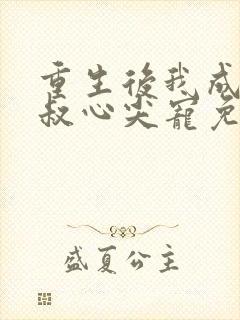 重生後我成
叔心尖寵免
盛夏公主